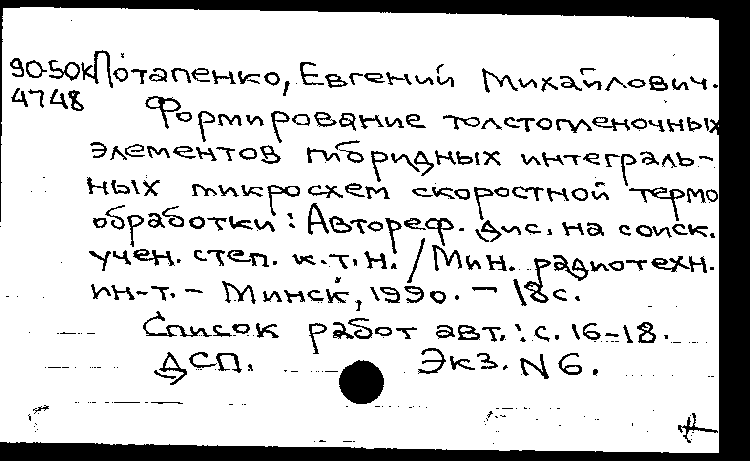 90-50к Потапенко, Евгений Михайлович.
4748 Формирование толстопленочных
элементов гибридных интеграль-
ных микросхем скоростной термо
обработки: Автореф. дис. на соиск.
учен. степ. к.т.н. / Мин. радиотехн.
ин-т. - Минск, 1990. - 18 с.
Список работ авт.: с. 16-18.
ДСП. Экз. N 6.